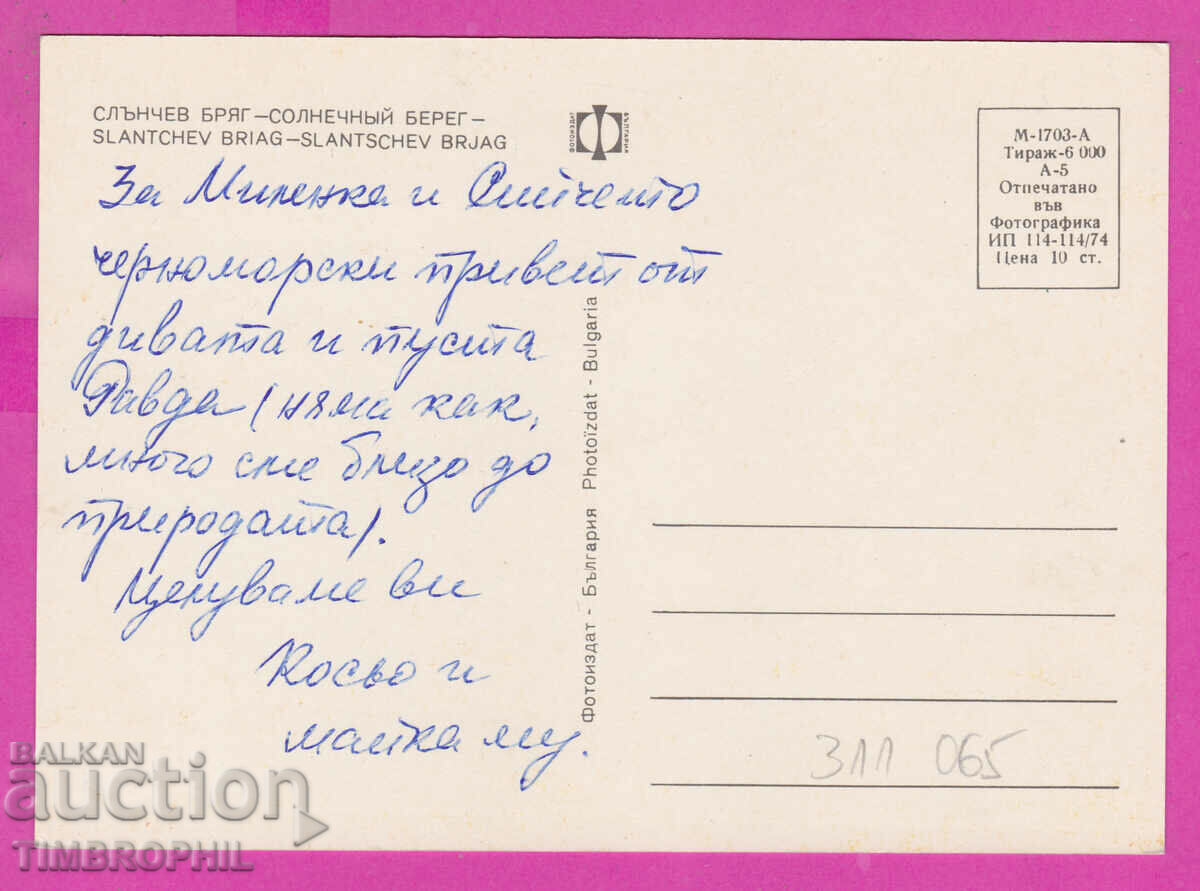 СЛЪНЧЕВ БРЯГ—СОЛНЕЧНЫЙ БЕРЕГ—
SLANTCHEV BRIAG—SLANTSCHEV BRJAG
ФОТОИЗДАТ
БЪЛГАРИЯ
М-1703-А
Тираж-6 000
А-5
Отпечатано
във
Фотографика
ИП 114-114/74
Цена 10 ст.
За Миленка и
черноморски привет от
дивата и пуста
Равда (няма как,
много сме близо до
природата).
Целуваме ви
Косьо и
майка му.
Фотоиздат - България Photoïzdat - Bulgaria
311 065
BALKAN
auction
TIMBROPHIL